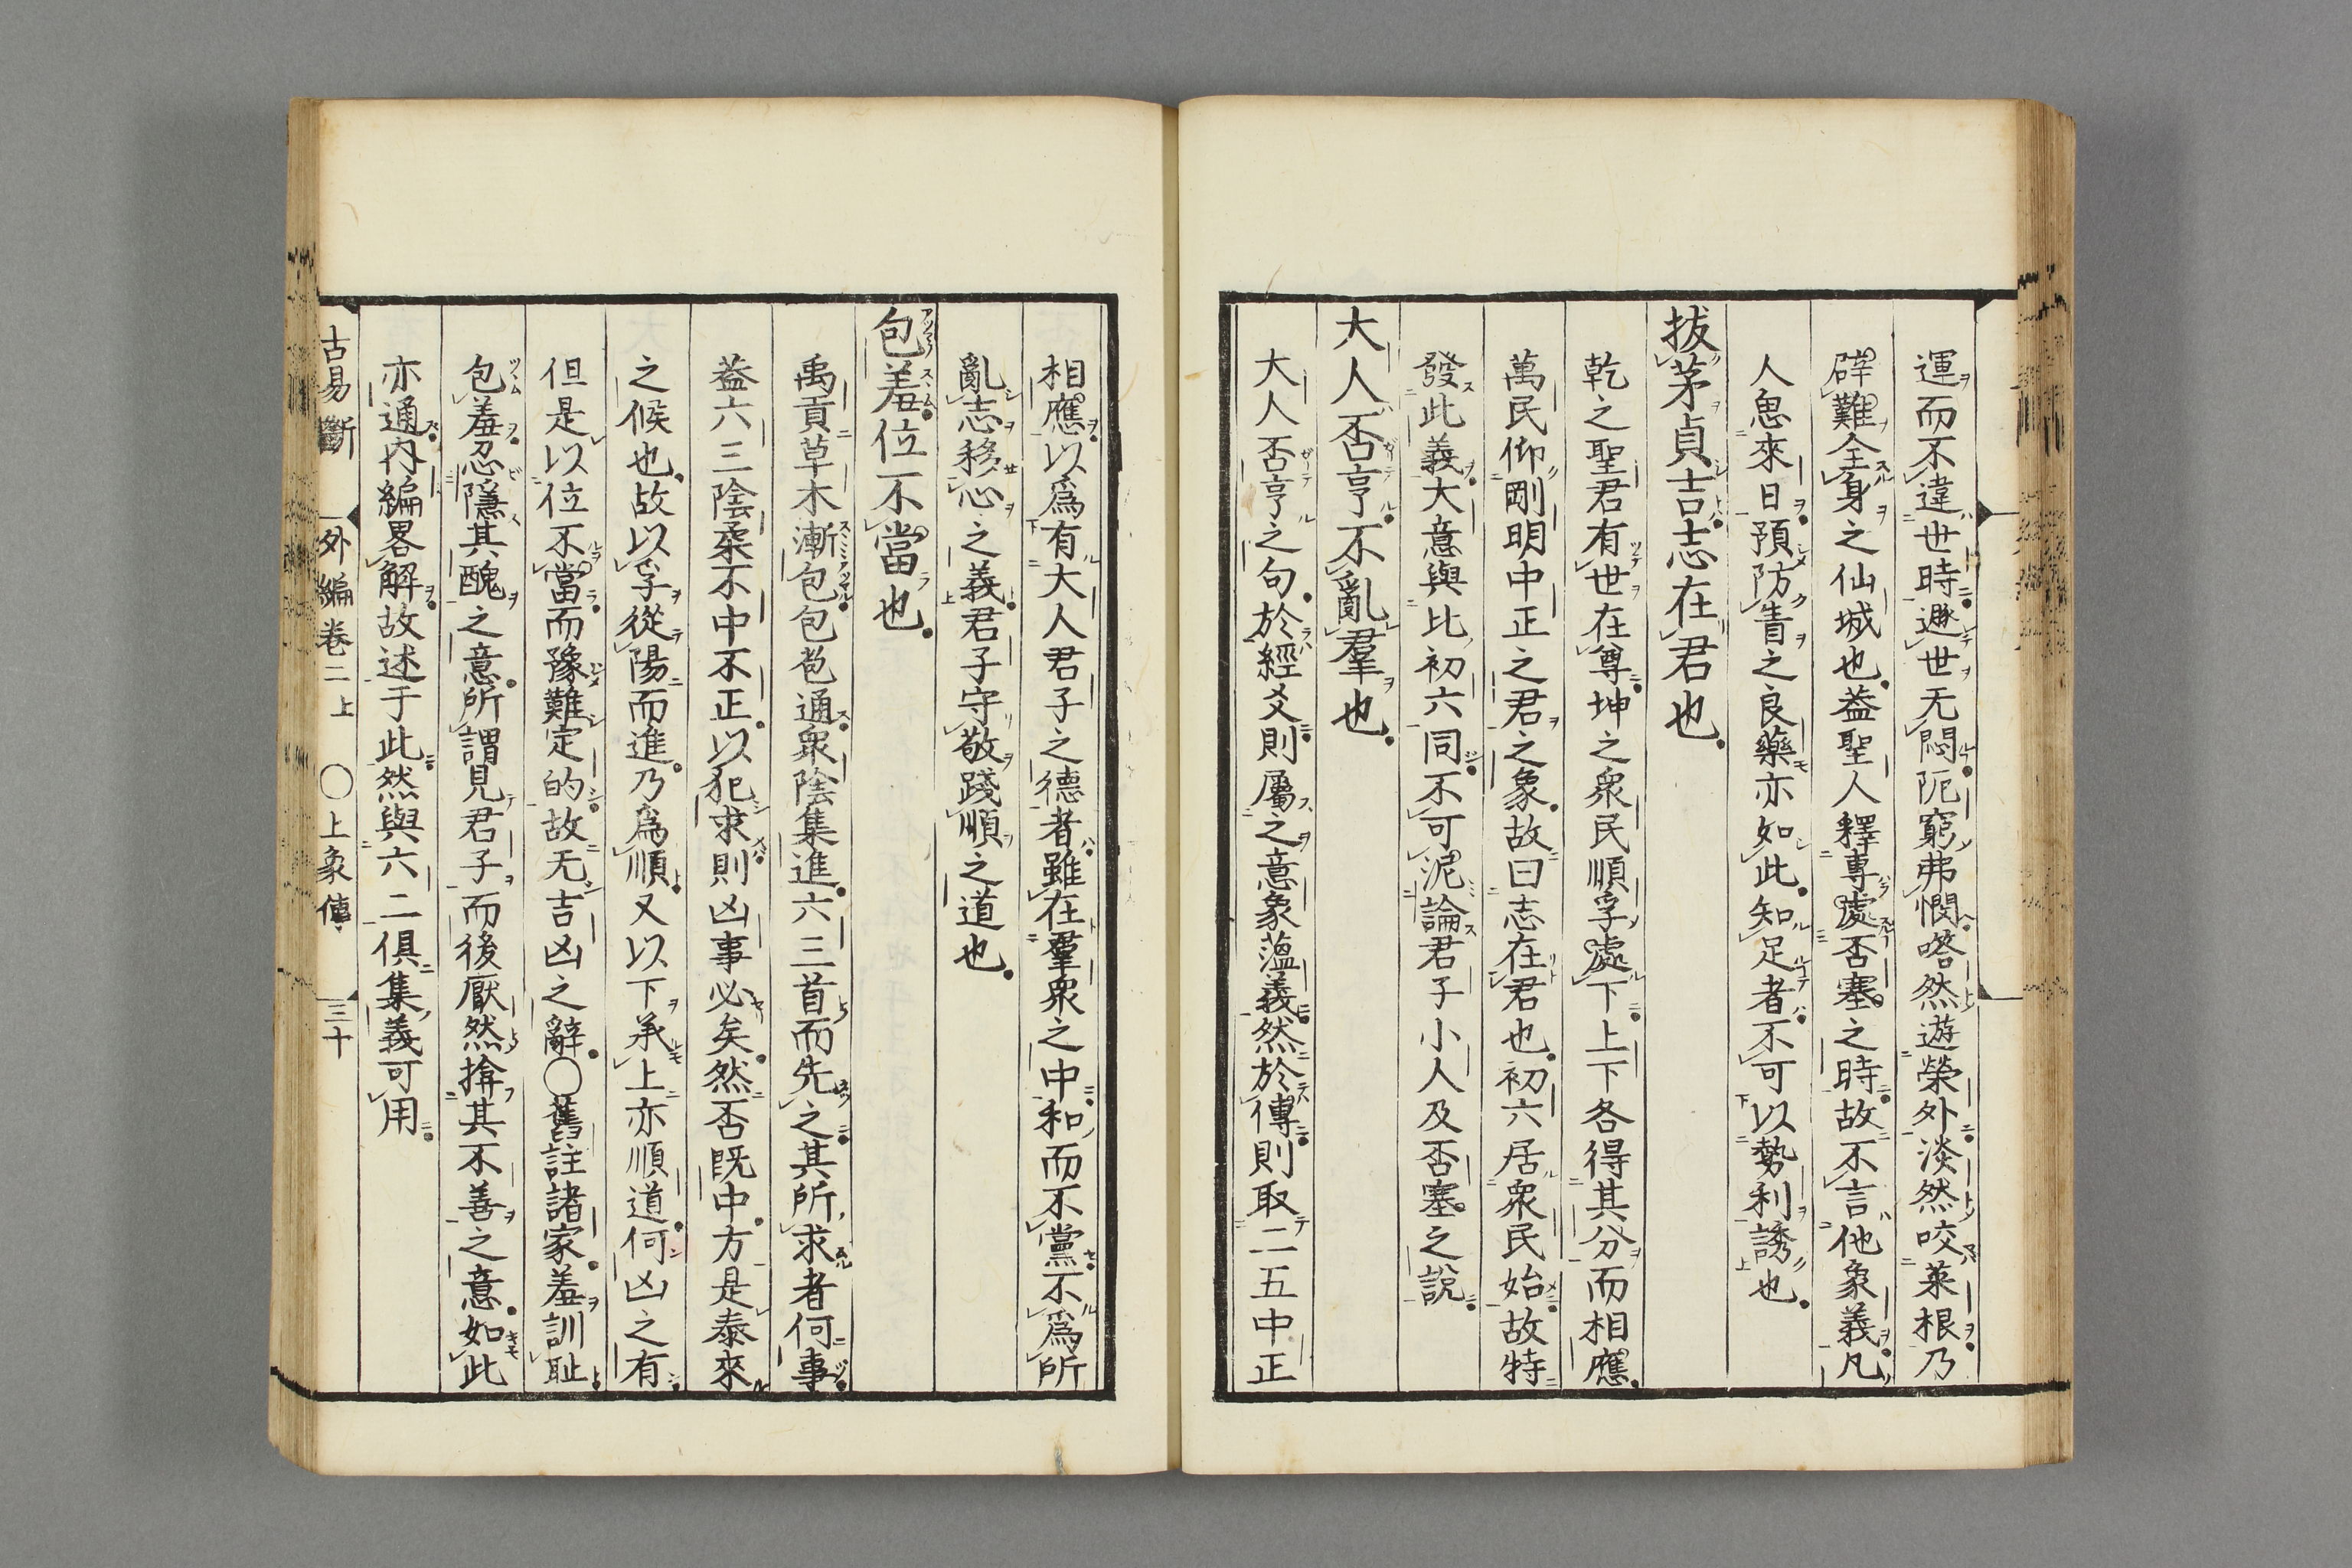 運而不違世時遯世无悶阨窮弗憫嗒然遊榮外淡然咬菜根乃
辟難全身之仙城也蓋聖人釋專處否塞之時故不言他象義凡
人思來日預防眚之良藥亦如此知足者不可以勢利誘也
拔茅貞吉志在君也
乾之聖君有世在尊坤之衆民順孚處下上下各得其分而相應
萬民仰剛明中正之君之象故曰志在君也初六居衆民始故特
發此義大意與比初六同不可泥論君子小人及否塞之說
大人否亨不亂羣也
大人否亨之句於經爻則屬之意象薀義然於傳則取二五中正
相應以爲有大人君子之德者雖在羣衆之中和而不黨不爲所
亂志移心之義君子守敬踐順之道也
包羞位不當也
禹貢草木漸包包苞通衆陰集進六三首而先之其所求者何事
蓋六三陰柔不中不正以犯求則凶事必矣然否既中方是泰來
之候也故以孚從陽而進乃爲順又以下承上亦順道何凶之有
但是以位不當而豫難定的故无吉凶之辭〇舊註諸家羞訓耻
包羞忍隱其醜之意所謂見君子而後厭然揜其不善之意如此
亦通内編畧解故述于此然與六二俱集義可用
古易斷 外編卷二上 〇上象傳 三十